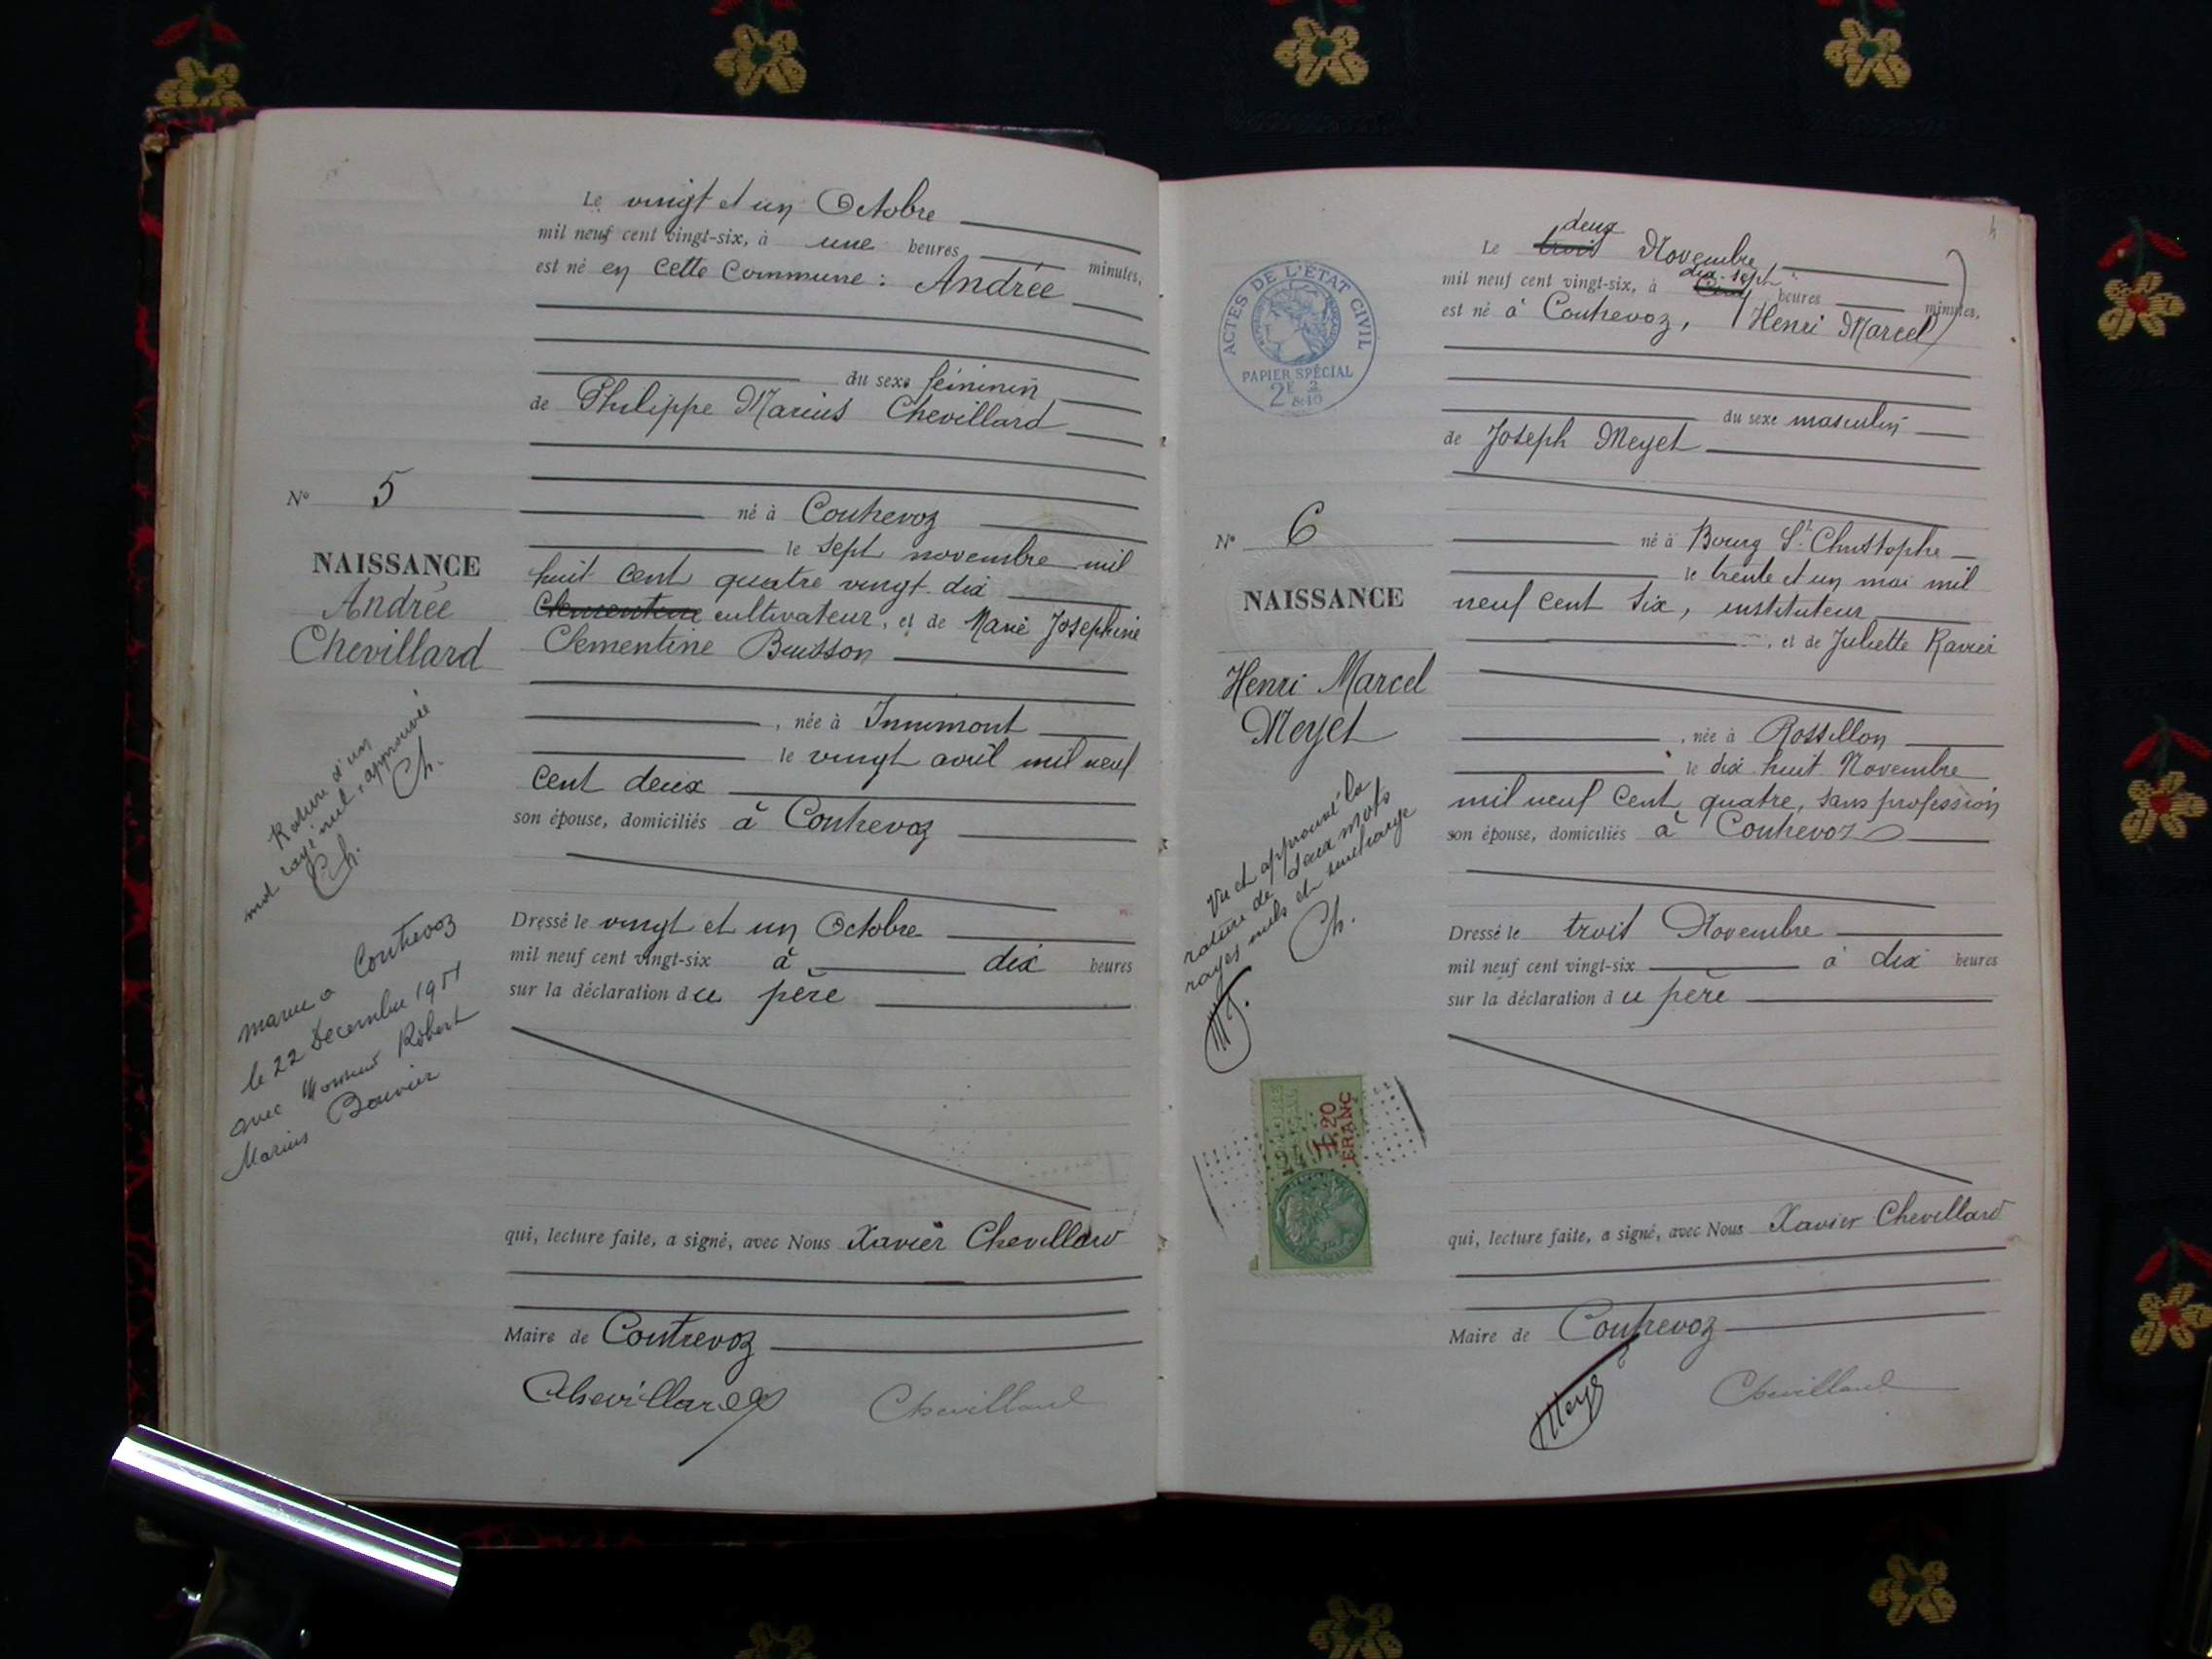 Le vingt et un Octobre
mil neuf cent vingt-six, à une heures minutes,
est né en cette Commune : Andrée
du sexe féminin
de Philippe Marius Chevillard
né à Contrevoz
le sept novembre mil
huit cent quatre vingt dix
Clementine cultivateur, et de Marie Josephine
Clementine Buisson
, née à Innimont
le vingt avril mil neuf
cent deux
son épouse, domiciliés à Contrevoz
Dressé le vingt et un Octobre
mil neuf cent vingt-six à dix heures
sur la déclaration du père
qui, lecture faite, a signé, avec Nous Xavier Chevillard
Maire de Contrevoz
Chevillard Chevillard
N° 5
NAISSANCE
Andrée
Chevillard
Rature d'un
mot rayé nul, approuvée
Ch. Ch.
mariée a Contrevoz
le 22 Decembre 1951
avec Monsieur Robert
Marius Bouvier
4
Le trois deux Novembre
mil neuf cent vingt-six, à dix-sept heures minutes,
est né à Contrevoz, Henri Marcel
du sexe masculin
de Joseph Meyet
né à Bourg St Christophe
le trente et un mai mil
neuf cent six, instituteur
, et de Juliette Ravier
, née à Rossillon
le dix huit Novembre
mil neuf cent quatre, sans profession
son épouse, domiciliés à Contrevoz
Dressé le trois Novembre
mil neuf cent vingt-six à dix heures
sur la déclaration du père
qui, lecture faite, a signé, avec Nous Xavier Chevillard
Maire de Contrevoz
Chevillard
ACTES DE L'ÉTAT CIVIL
PAPIER SPÉCIAL
N° 6
NAISSANCE
Henri Marcel
Meyet
Vu et approuvé la
rature de deux mots
rayés nuls et surcharge
Ch.
1.20
FRANC